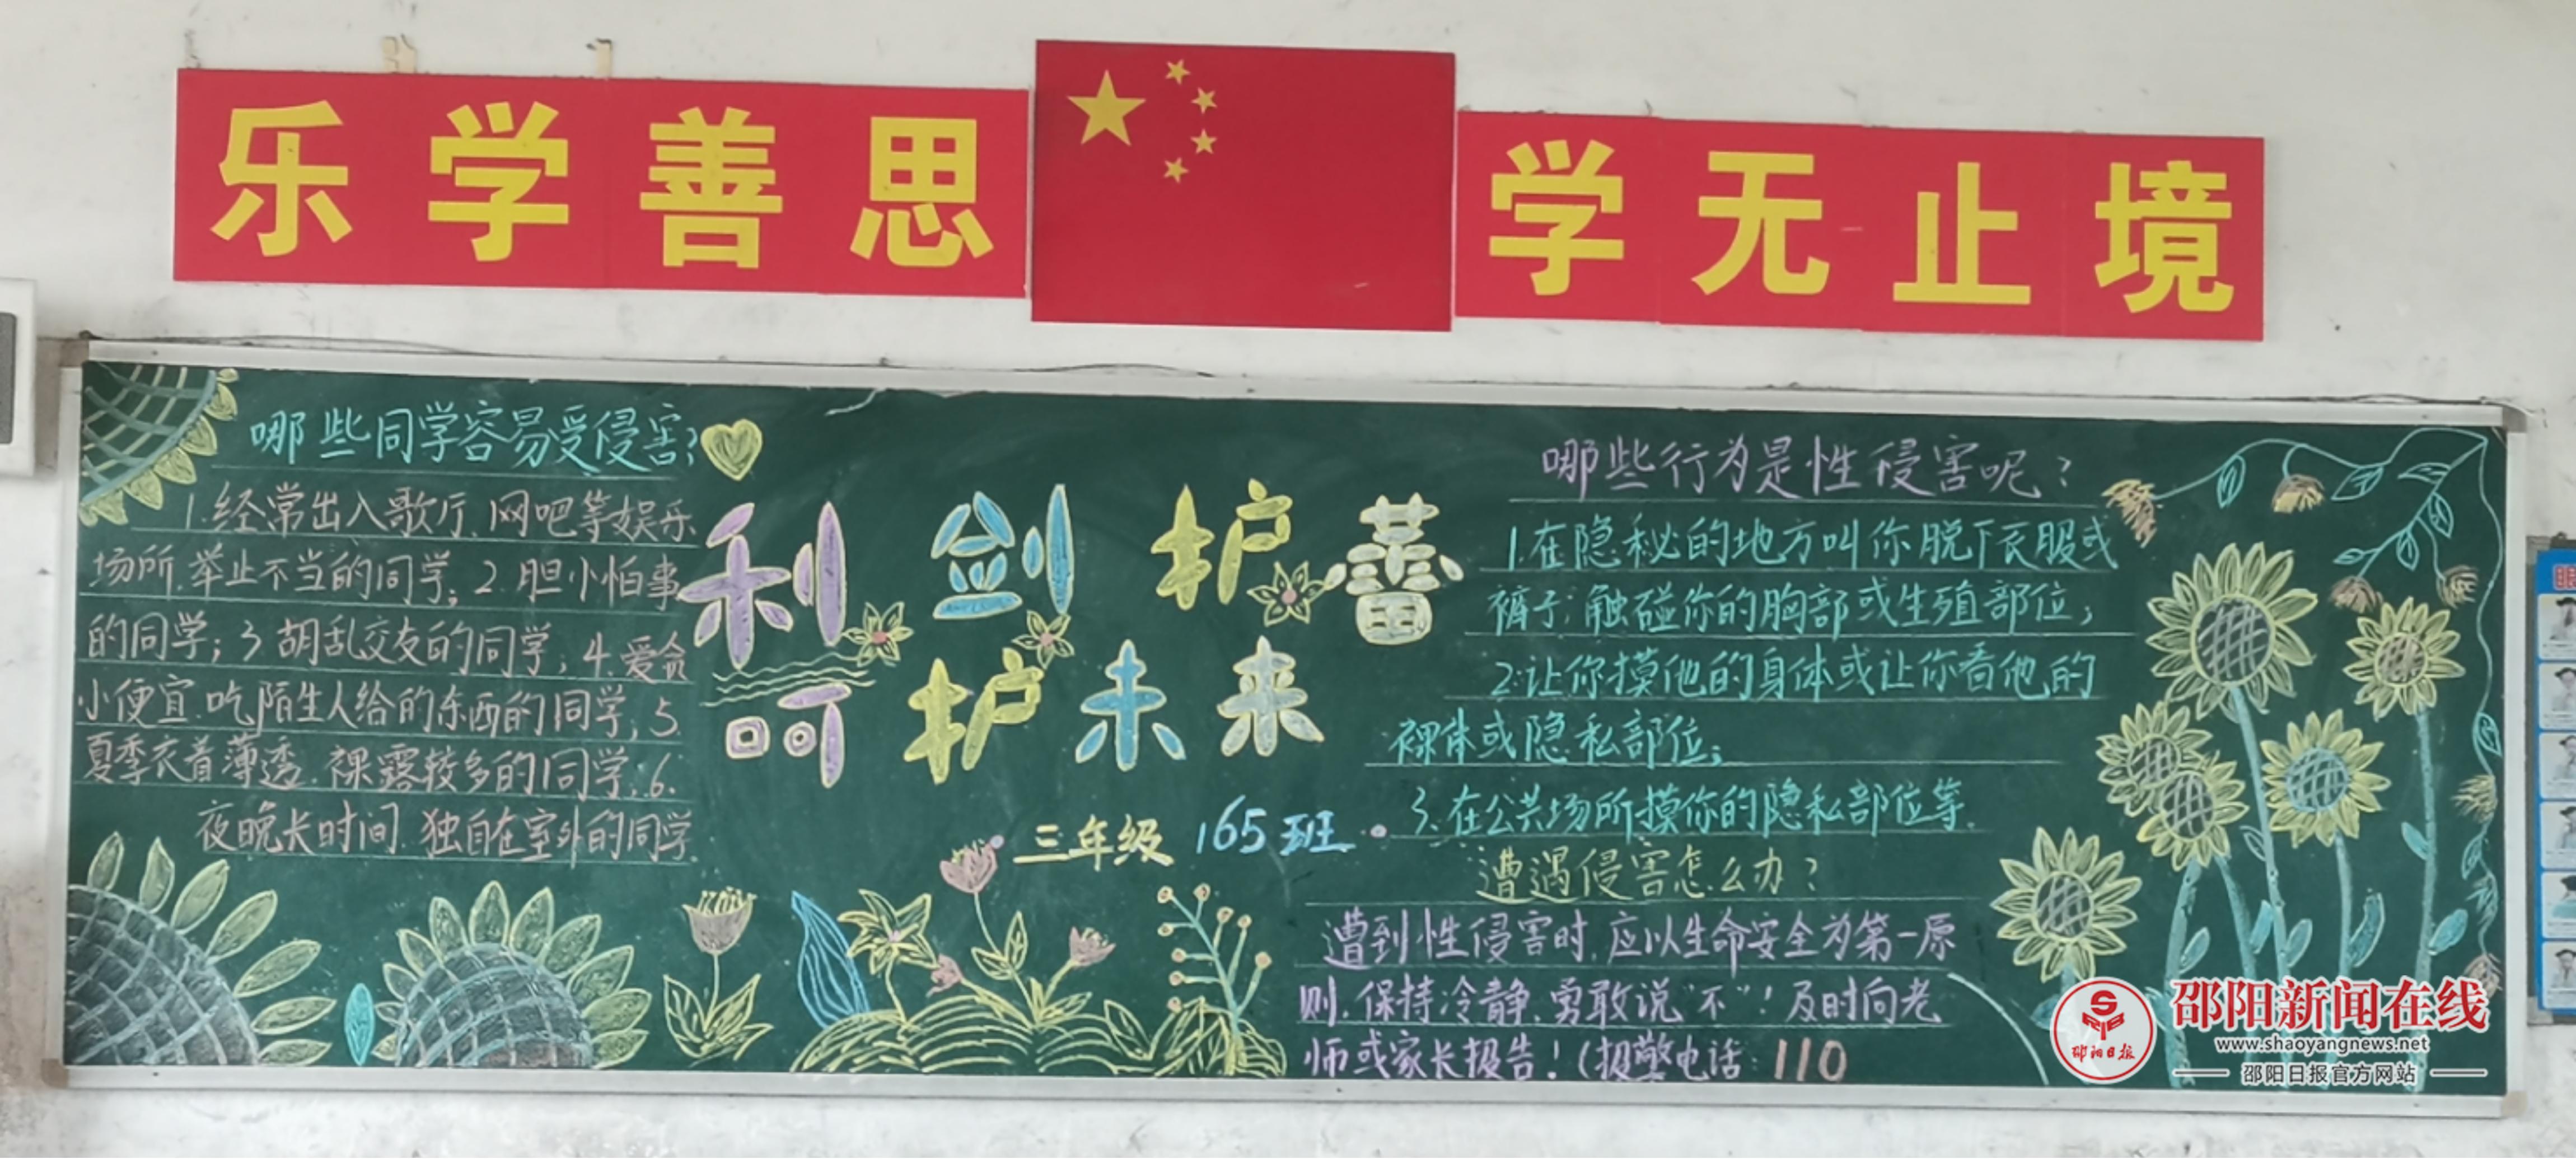 乐学善思
学无止境
哪些同学容易受侵害?
1.经常出入歌厅、网吧等娱乐
场所,举止不当的同学;2.胆小怕事
的同学;3胡乱交友的同学;4.爱贪
小便宜、吃陌生人给的东西的同学;5.
夏季衣着薄透、裸露较多的同学;6.
夜晚长时间、独自在室外的同学.
利剑护蕾
呵护未来
三年级 165班
哪些行为是性侵害呢?
1.在隐秘的地方叫你脱下衣服或
裤子;触碰你的胸部或生殖部位;
2.让你摸他的身体或让你看他的
裸体或隐私部位;
3.在公共场所摸你的隐私部位等.
遭遇侵害怎么办?
遭到性侵害时,应以生命安全为第一原
则,保持冷静,勇敢说“不”!及时向老
师或家长报告!(报警电话:110
邵阳日报
邵阳新闻在线
www.shaoyangnews.net
邵阳日报官方网站